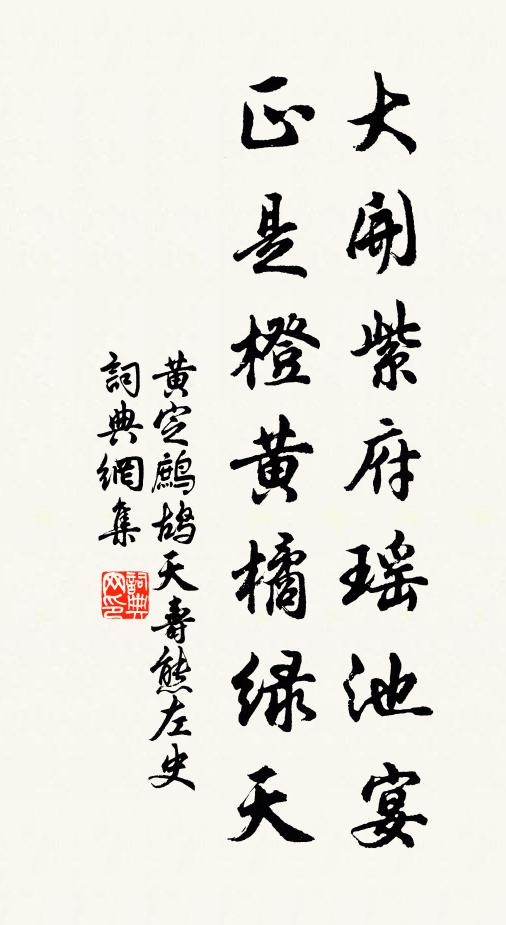 大開紫府瑤池宴
正是橙黃橘綠天
黃定鷓鴣天壽熊左史
詞典網集
詞典网印